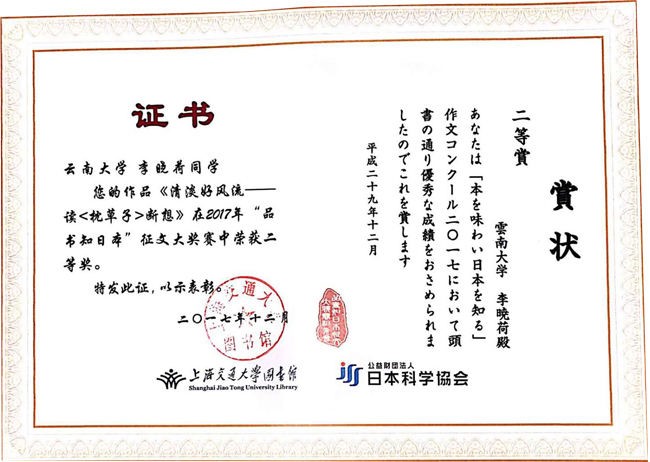 证书
云南大学 李晓荷同学
您的作品《清淡好风流——
读<枕草子>断想》在2017年“品
书知日本”征文大奖赛中荣获二
等奖。
特发此证，以示表彰。
二〇一七年十二月
图书馆
上海交通大学图书馆
Shanghai Jiao Tong University Library
賞状
二等賞
雲南大学 李曉荷殿
あなたは「本を味わい日本を知る」
作文コンクール二〇一七において頭
書の通り優秀な成績をおさめられま
したのでこれを賞します
平成二十九年十二月
公益財団法人
JSS 日本科学協会